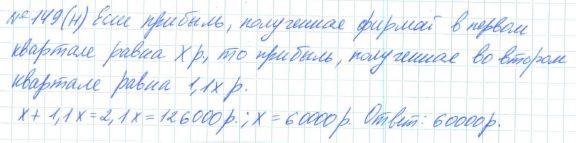 № 149(н) Если прибыль, полученная фирмой в первом
квартале равна х р, то прибыль, полученная во втором
квартале равна 1,1х р.
х + 1,1х = 2,1х = 126000р.; х = 60000р. Ответ: 60000р.